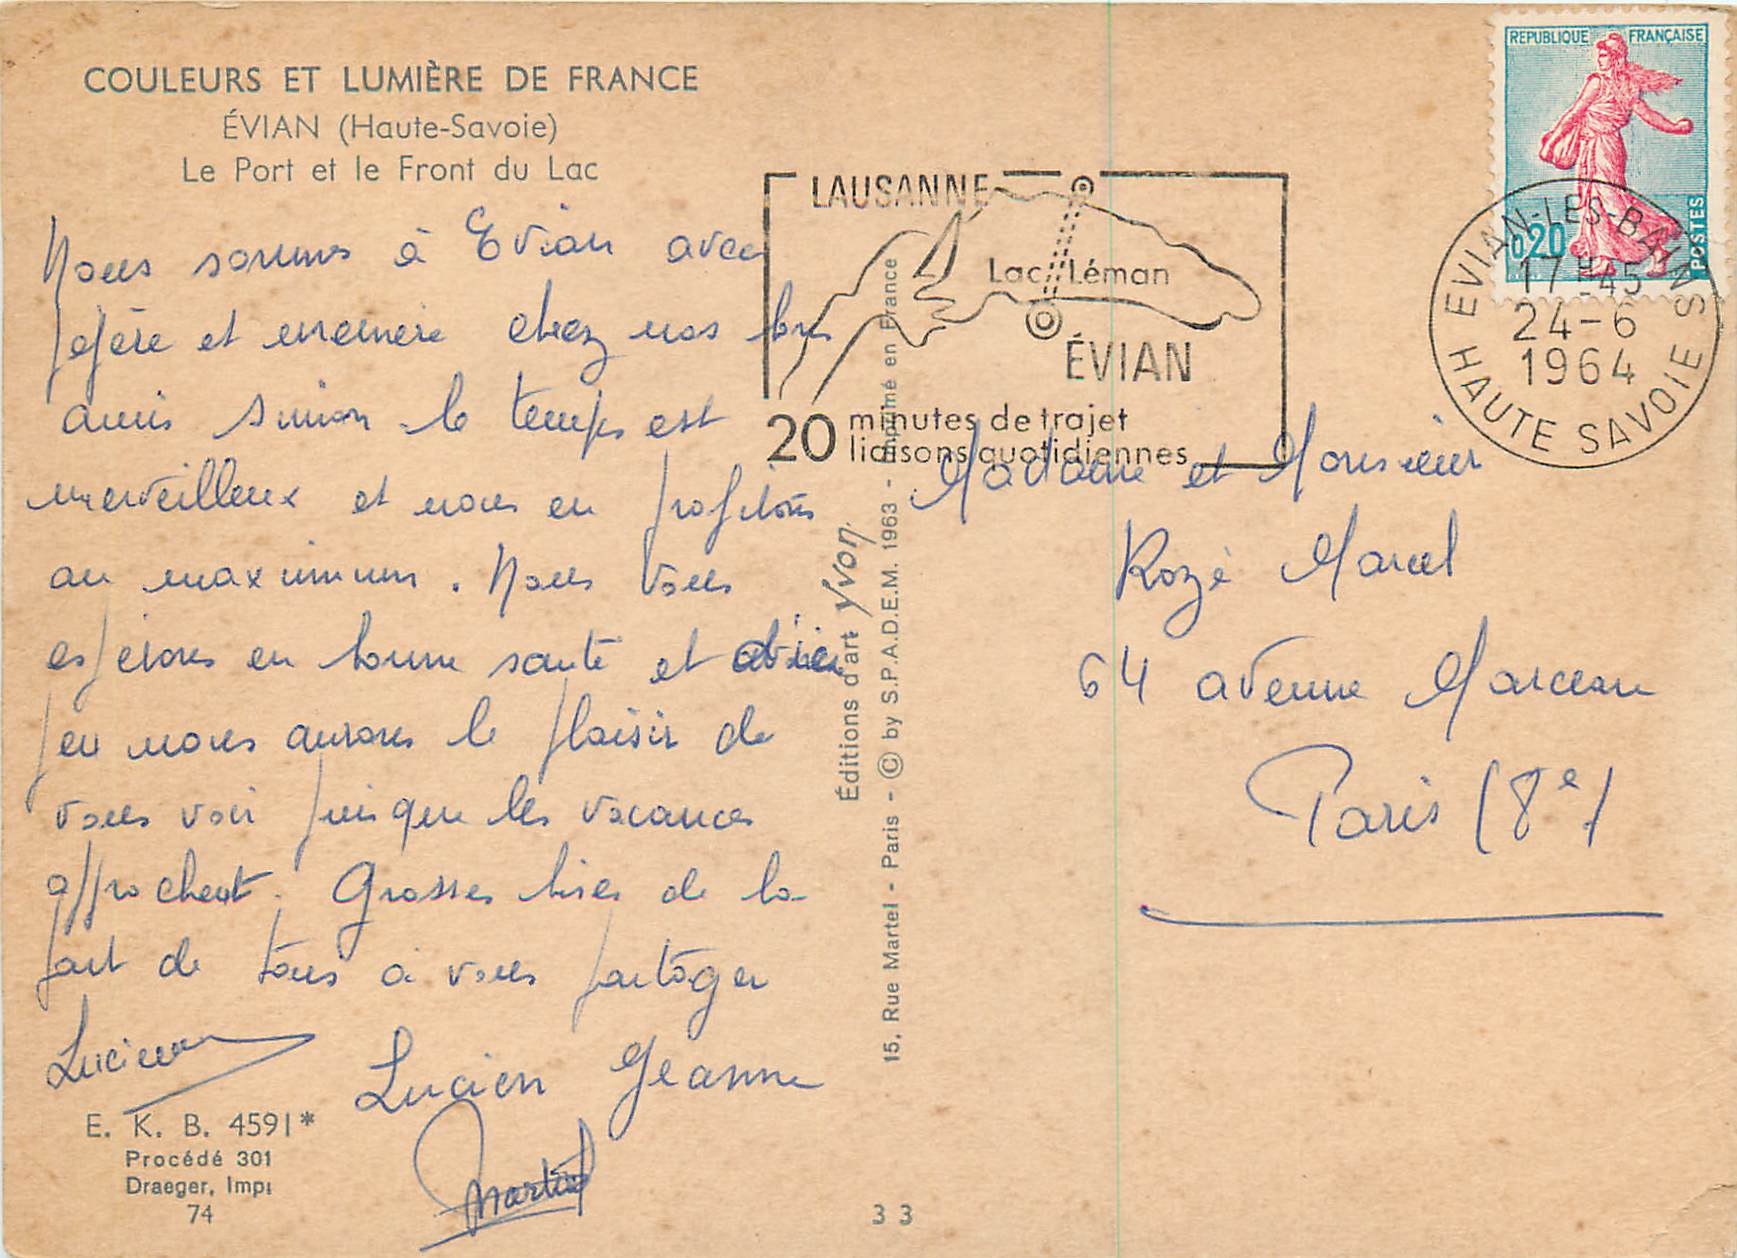 COULEURS ET LUMIÈRE DE FRANCE
ÉVIAN (Haute-Savoie)
Le Port et le Front du Lac
Nous sommes à Evian avec
pépère et mémère chez nos bons
amis Simon. le temps est
merveilleux et nous en profitons
au maximum. Nous vous
espérons en bonne santé et
nous aurons le plaisir de
vous voir puisque les vacances
approchent. Grosses bises de la
part de tous à vous partager
Lucienne
Lucien Jeanne
Martial
E. K. B. 4591*
Procédé 301
Draeger, Imp.
74
Éditions d'art Yvon
15, Rue Martel - Paris - © by S.P.A.D.E.M. 1963 - Imprimé en France
33
LAUSANNE
Lac Léman
ÉVIAN
20 minutes de trajet
liaisons quotidiennes
REPUBLIQUE FRANÇAISE
0,20
POSTES
EVIAN-LES-BAINS
17H45
24-6
1964
HAUTE SAVOIE
Madame et Monsieur
Rozé Marcel
64 avenue Marceau
Paris (8e)